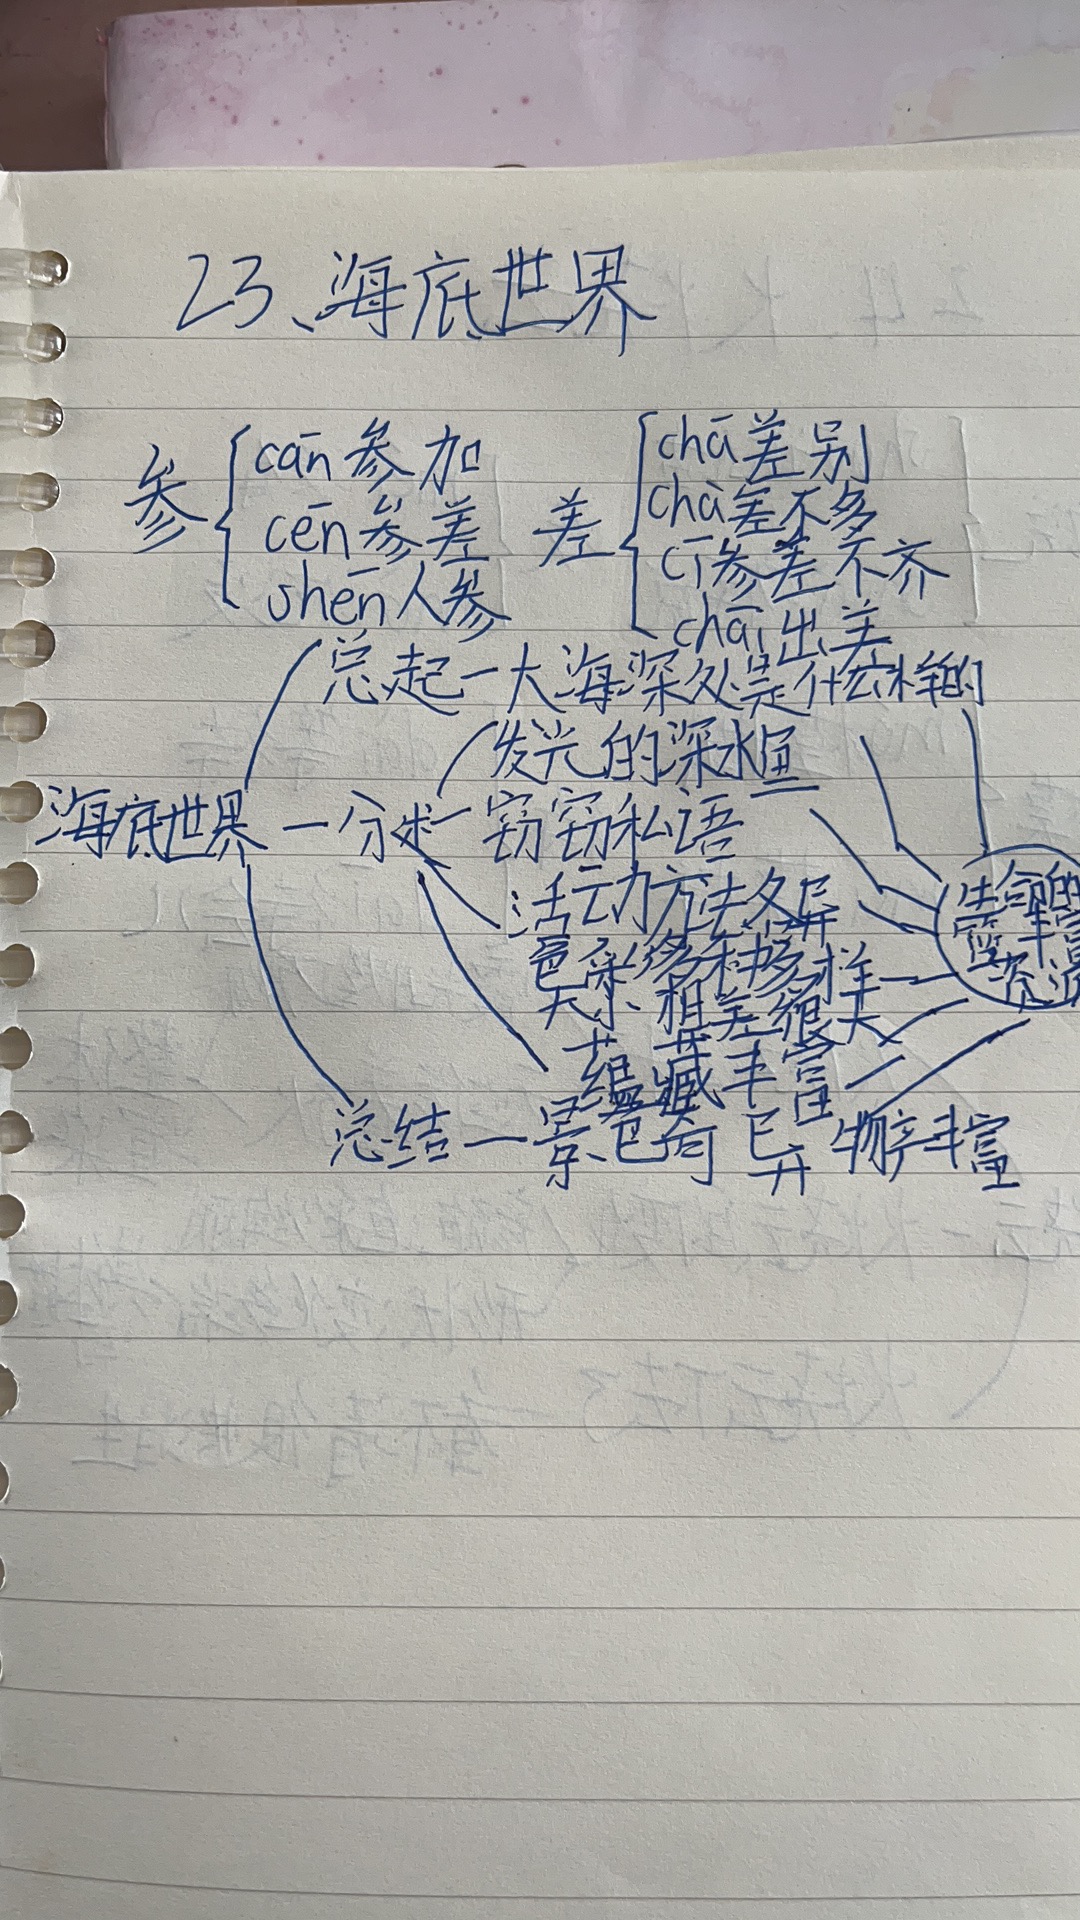 23、海底世界
参 cān 参加
cēn 参差
shēn 人参
差 chā 差别
chà 差不多
cī 参差不齐
chāi 出差
总起一大海深处是什么样的
发光的深水鱼
海底世界一分述一窃窃私语
活动方法各异
色彩多种多样
大小相差很大
蕴藏丰富
总结一景色奇异 物产丰富
生命的
丰富
资源